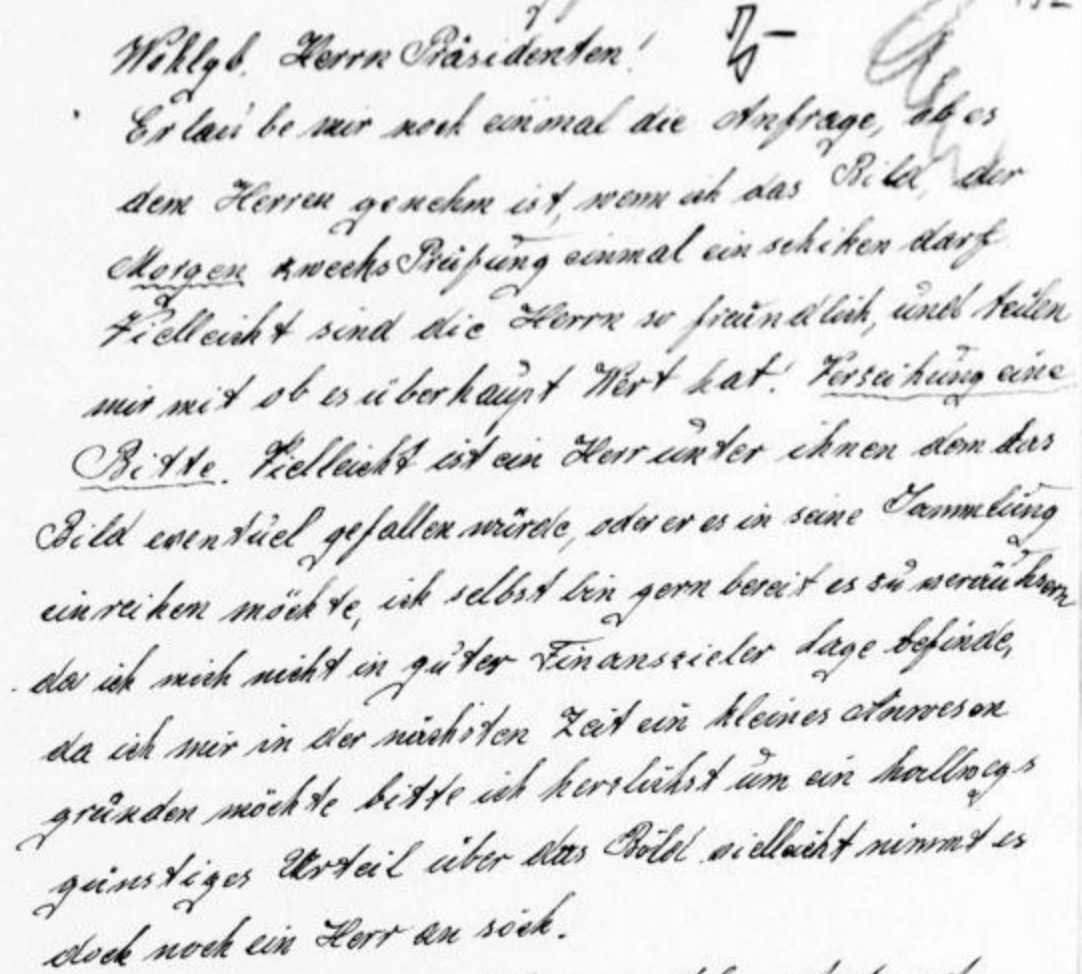 Wohlgb. Herrn Präsidenten!
Erlaube mir noch einmal die Anfrage, ob es
dem Herren genehm ist, wenn ich das Bild, der
Morgen zwecks Prüfung einmal einschiken darf.
Vielleicht sind die Herrn so freundlich, und teilen
mir mit ob es überhaupt Wert hat! Verzeihung eine
Bitte. Vielleicht ist ein Herr unter ihnen dem das
Bild eventuel gefallen würde, oder er es in seine Sammlung
einreihen möchte, ich selbst bin gern bereit es zu veräußern
da ich mich nicht in guter Finanzieler Lage befinde,
da ich mir in der nächsten Zeit ein kleines Anwesen
gründen möchte bitte ich herzlichst um ein hallwegs
günstiges Urteil über das Bild vielleicht nimmt es
doch noch ein Herr an sich.